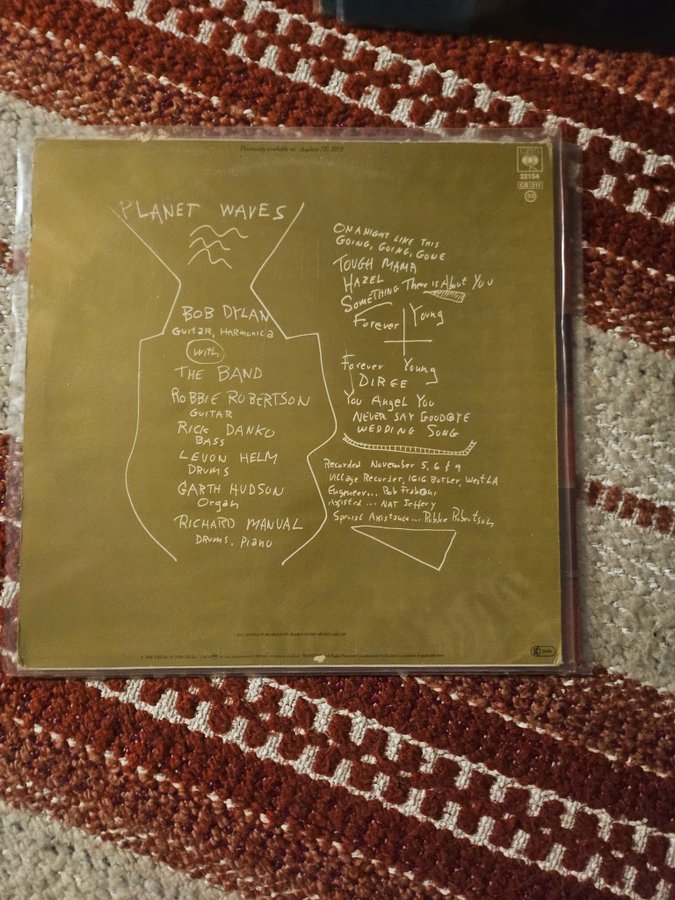 Previously available on Asylum
CBS
32154
CB 211
PLANET WAVES
BOB DYLAN
GUITAR, HARMONICA
with
THE BAND
ROBBIE ROBERTSON
GUITAR
RICK DANKO
BASS
LEVON HELM
DRUMS
GARTH HUDSON
Organ
RICHARD MANUAL
DRUMS, PIANO
ON A NIGHT LIKE THIS
GOING, GOING, GONE
TOUGH MAMA
HAZEL
SOMETHING There is About You
Forever Young
Forever Young
DIRGE
You Angel You
NEVER SAY GOODBYE
WEDDING SONG
Recorded November 5, 6 & 9
Village Recorder, 1616 Butler, West LA
Engineer... Rob Fraboni
Assisted... NAT Jeffery
Special Assistance... Robbie Robertson
ALL SONGS PUBLISHED BY RAM'S HORN MUSIC